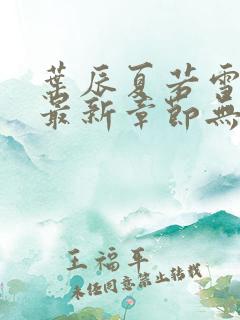 葉辰夏若雪
最新章節無
王福平
未经同意禁止转载